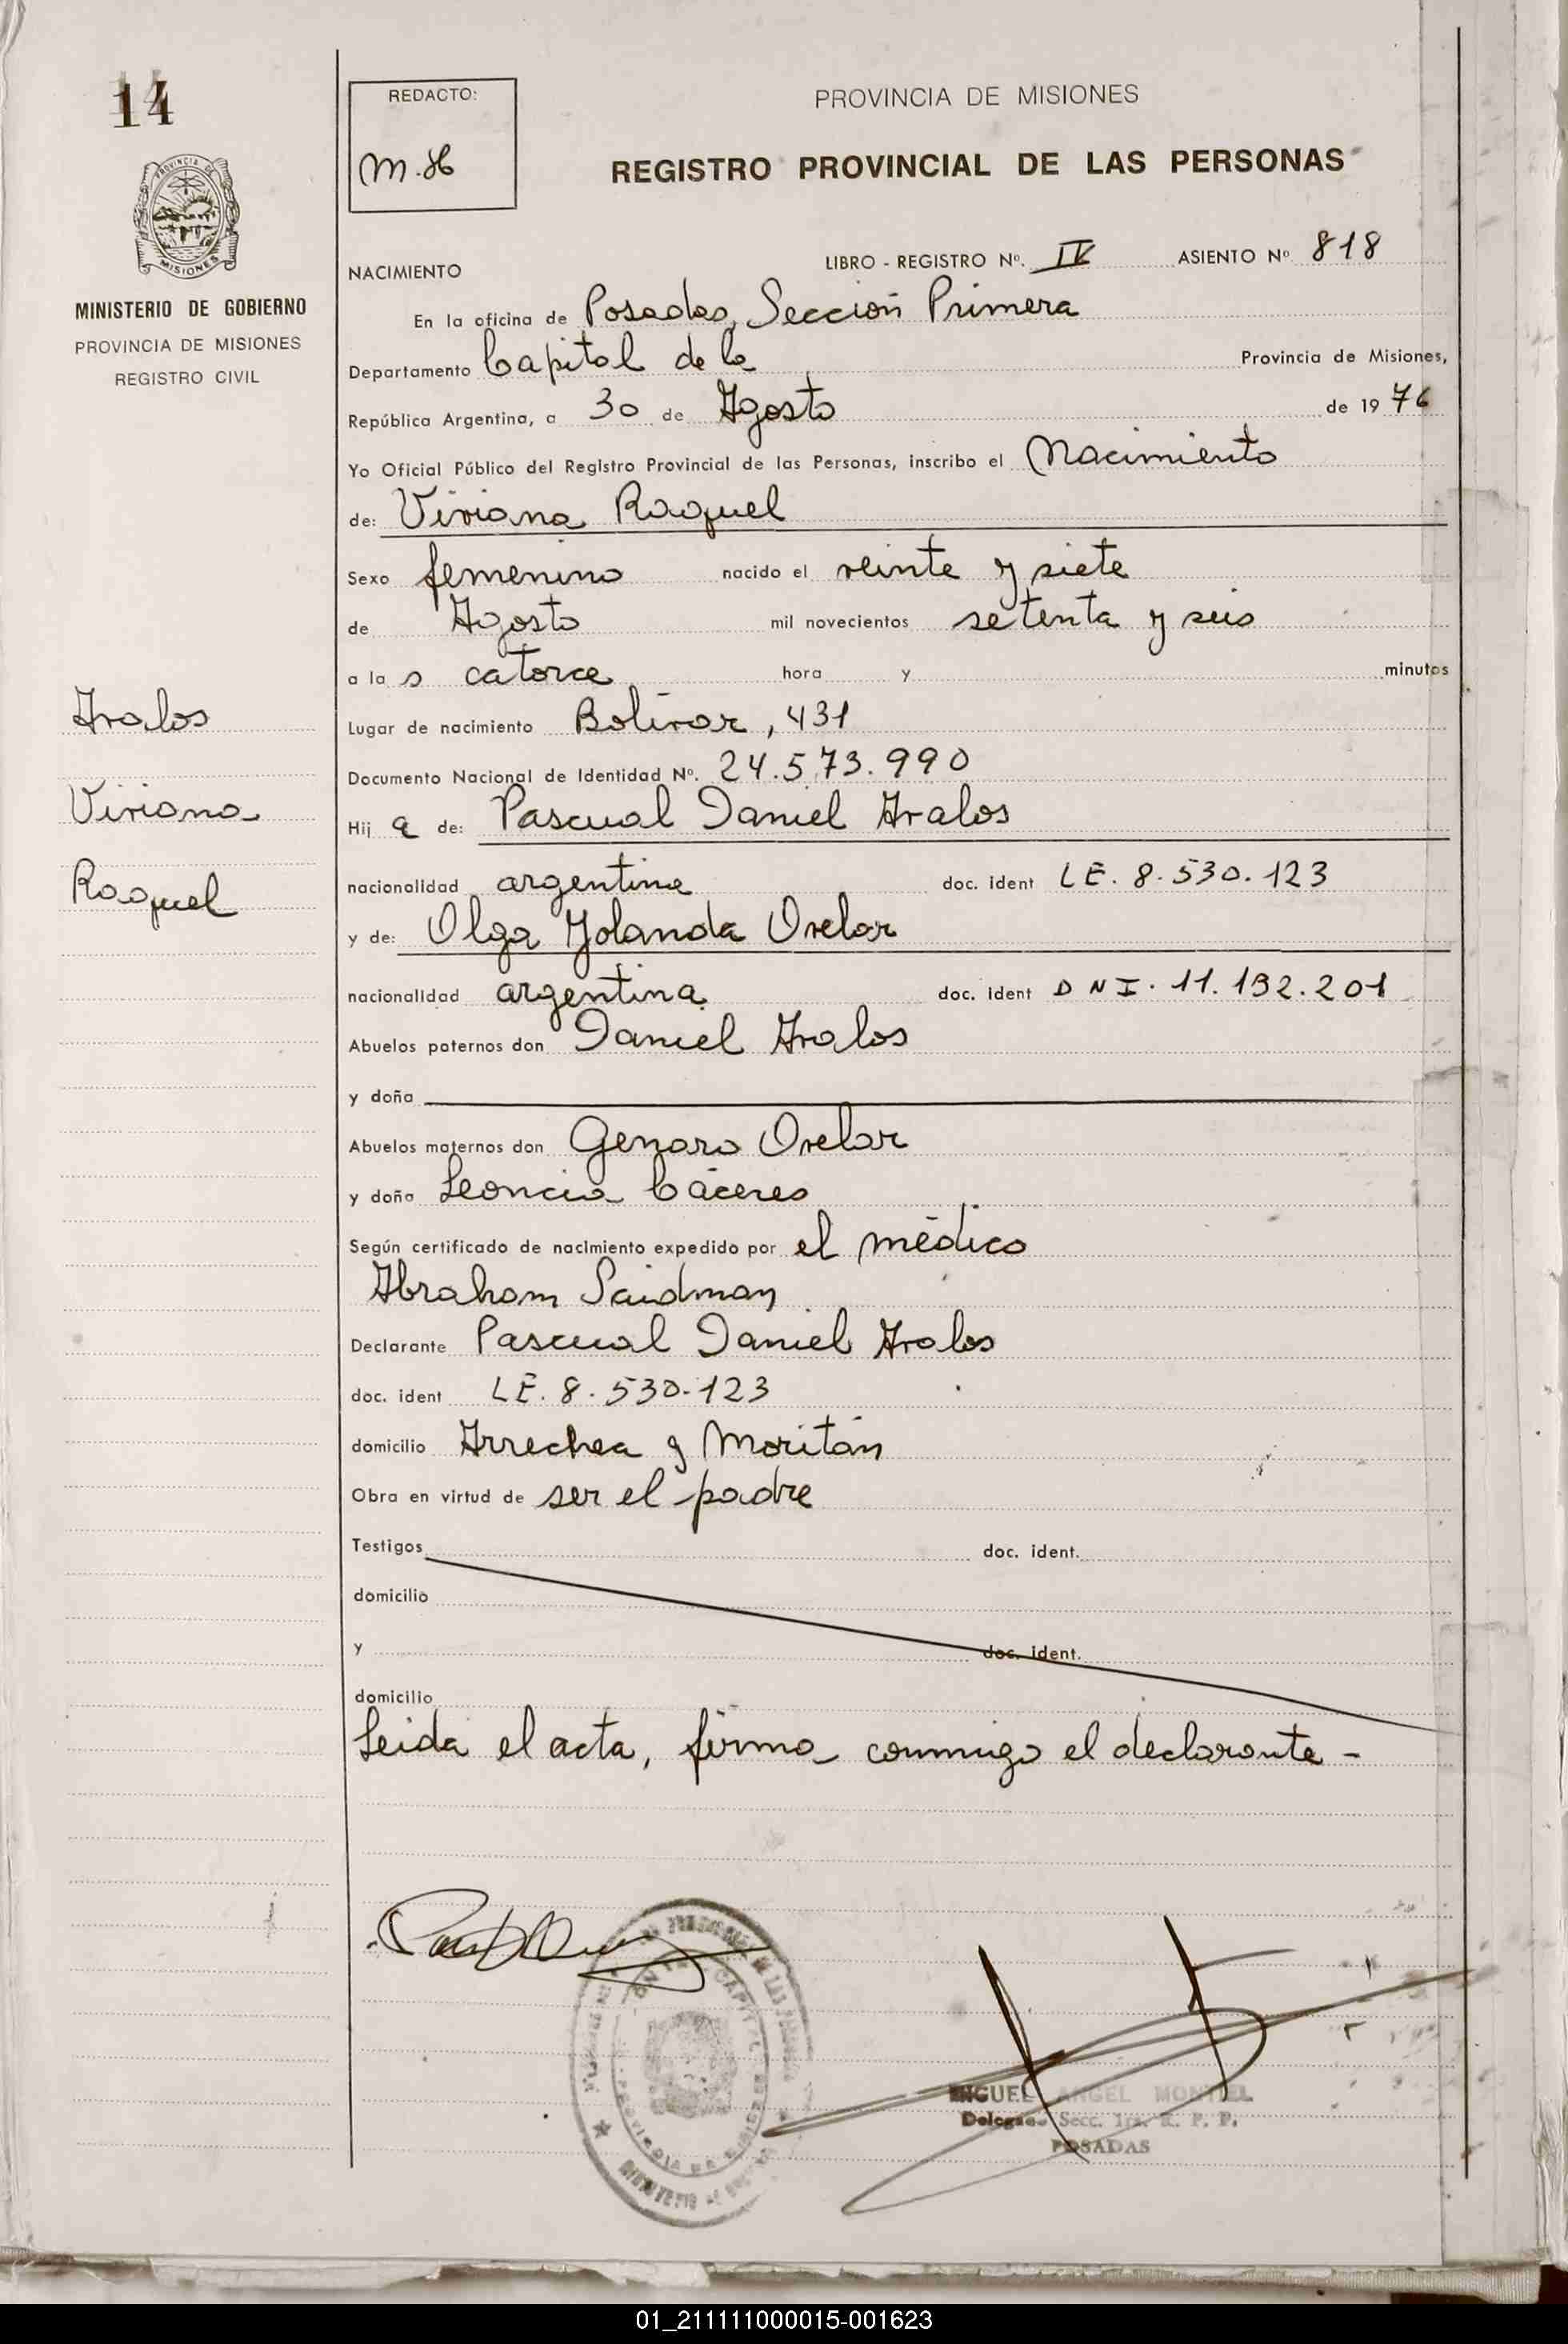 14
PROVINCIA DE
MISIONES
MINISTERIO DE GOBIERNO
PROVINCIA DE MISIONES
REGISTRO CIVIL
Avalos
Viviana
Raquel
REDACTO:
M.H
PROVINCIA DE MISIONES
REGISTRO PROVINCIAL DE LAS PERSONAS
NACIMIENTO LIBRO - REGISTRO Nº. IV ASIENTO Nº 818
En la oficina de Posadas, Sección Primera
Departamento Capital de la Provincia de Misiones,
República Argentina, a 30 de Agosto de 1976
Yo Oficial Público del Registro Provincial de las Personas, inscribo el Nacimiento
de: Viviana Raquel
Sexo femenino nacido el veinte y siete
de Agosto mil novecientos setenta y seis
a la s catorce hora y minutos
Lugar de nacimiento Bolívar, 431
Documento Nacional de Identidad Nº. 24.573.990
Hij a de: Pascual Daniel Avalos
nacionalidad argentina doc. ident LE. 8.530.123
y de: Olga Yolanda Ovelar
nacionalidad argentina doc. ident DNI. 11.192.201
Abuelos paternos don Daniel Avalos
y doña
Abuelos maternos don Genaro Ovelar
y doña Leoncia Cáceres
Según certificado de nacimiento expedido por el médico
Abraham Saidman
Declarante Pascual Daniel Avalos
doc. ident LE. 8.530.123
domicilio Arrechea y Moritán
Obra en virtud de ser el padre
Testigos doc. ident.
domicilio
y doc. ident.
domicilio
Leida el acta, firma conmigo el declarante -
CAPITAL
MIGUEL ANGEL MONTIEL
Delegado Secc. 1ra. R. P. P.
POSADAS
01_211111000015-001623